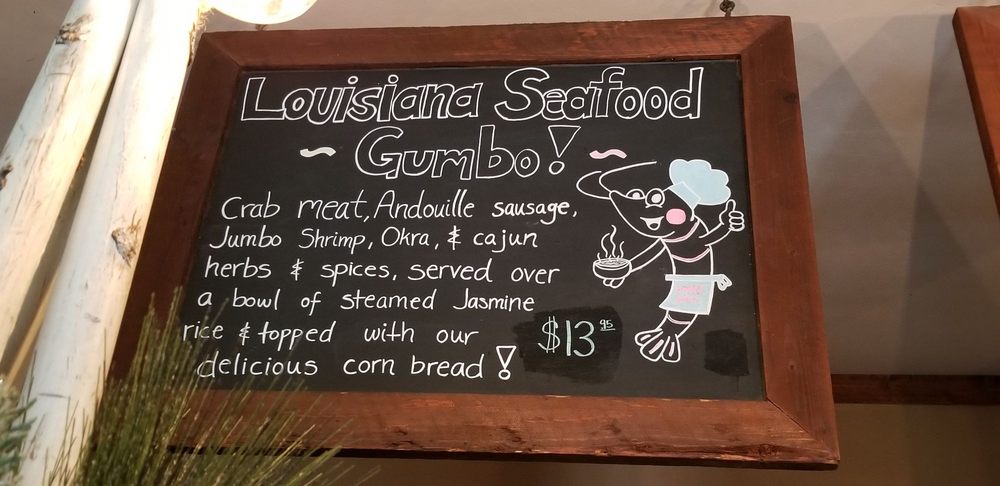 Louisiana Seafood
~ Gumbo! ~
Crab meat, Andouille sausage,
Jumbo Shrimp, Okra, & cajun
herbs & spices, served over
a bowl of steamed Jasmine
rice & topped with our
delicious corn bread!
$13 95